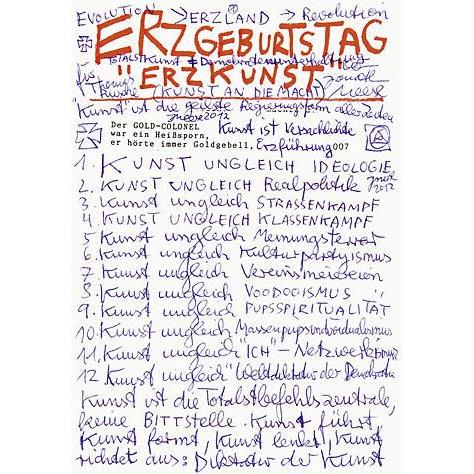 EVOLUTION > ERZLAND > Revolution
ERZGEBURTSTAG
TOTALSTKunst ≠ Demokratenunterhaltung
"ERZKUNST"
für Thomas
(KUNST AN DIE MACHT) Meese
"Kunst" ist die geilste Regierungsform aller Zeiten
Meese 2012
Der GOLD-COLONEL
war ein Heißsporn,
er hörte immer Goldgebell,
Kunst ist
Erzführung 007
1. KUNST UNGLEICH IDEOLOGIE
Meese 2012
2. KUNST UNGLEICH Realpolitik
3. Kunst ungleich STRASSENKAMPF
4. KUNST UNGLEICH KLASSENKAMPF
5 Kunst ungleich Meinungsterror
6. Kunst ungleich Kulturpartyismus
7 Kunst ungleich Vereinsmeiereien
8. Kunst ungleich VOODOOISMUS
9. Kunst ungleich PUPSSPIRITUALITÄT
10. Kunst ungleich Massenpupsindividualismus
11. Kunst ungleich "ICH" - Netzwerk
12 Kunst ungleich Weltdiktatur der Demokratie
Kunst ist die Totalstbefehlszentrale,
keine BITTSTELLE. Kunst führt,
Kunst formt, Kunst lenkt, Kunst
richtet aus: Diktatur der Kunst